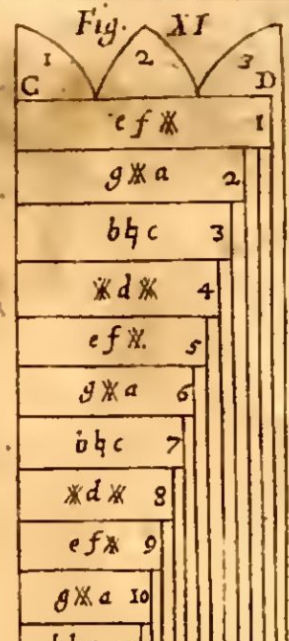 Fig. XI
1 2 3
C D
e f ※ 1
g ※ a 2
b ♮ c 3
※ d ※ 4
e f ※. 5
g ※ a 6
b ♮ c 7
※ d ※ 8
e f ※ 9
g ※ a 10